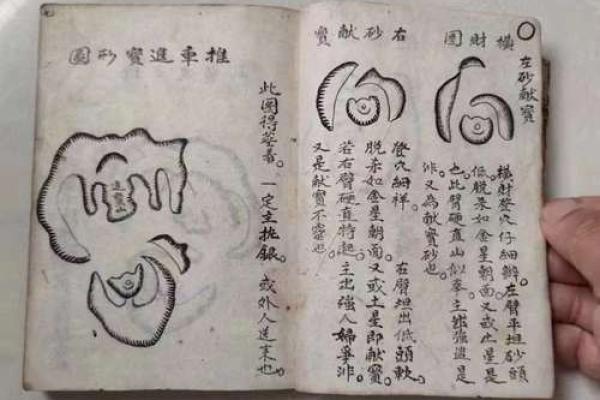 橫財圖
左砂獻寶
橫財登穴仔細辦。左臂平坦砂頭
低脫朵如金星朝面又或土星是
也此臂硬直山似拳主出強盜是
非又為獻寶砂也。
右砂獻寶
登穴細祥。右臂坦出低頭軟
脫朵如金星朝面。又或土星即獻寶。
若右臂硬直特起。主出強人婦爭非。
又是獻寶不靈也。
推車進寶砂圖
此圖得塟着。一定主拖銀。或外人送來也。